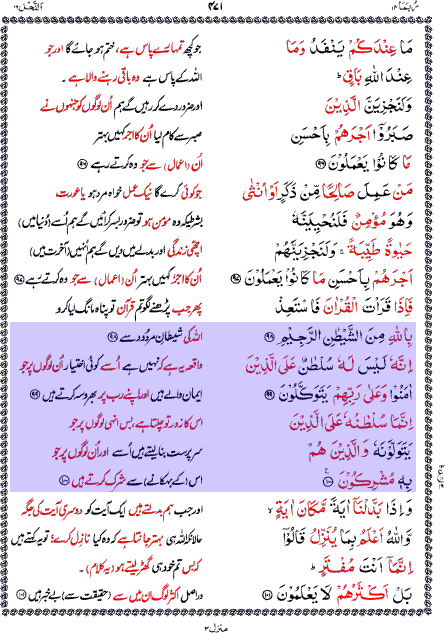 رُبَمَا ١٤
٤٧١
اَلنَّحْل ١٦
مَا عِنْدَكُمْ يَنْفَدُ وَمَا
عِنْدَ اللّٰهِ بَاقٍ ؕ
وَلَنَجْزِيَنَّ الَّذِيْنَ
صَبَرُوْۤا اَجْرَهُمْ بِاَحْسَنِ
مَا كَانُوْا يَعْمَلُوْنَ ﴿۹۶﴾
مَنْ عَمِلَ صَالِحًا مِّنْ ذَكَرٍ اَوْ اُنْثٰى
وَهُوَ مُؤْمِنٌ فَلَنُحْيِيَنَّهٗ
حَيٰوةً طَيِّبَةً ۚ وَلَنَجْزِيَنَّهُمْ
اَجْرَهُمْ بِاَحْسَنِ مَا كَانُوْا يَعْمَلُوْنَ ﴿۹۷﴾
فَاِذَا قَرَاْتَ الْقُرْاٰنَ فَاسْتَعِذْ
بِاللّٰهِ مِنَ الشَّيْطٰنِ الرَّجِيْمِ ﴿۹۸﴾
اِنَّهٗ لَيْسَ لَهٗ سُلْطٰنٌ عَلَى الَّذِيْنَ
اٰمَنُوْا وَعَلٰى رَبِّهِمْ يَتَوَكَّلُوْنَ ﴿۹۹﴾
اِنَّمَا سُلْطٰنُهٗ عَلَى الَّذِيْنَ
يَتَوَلَّوْنَهٗ وَالَّذِيْنَ هُمْ
بِهٖ مُشْرِكُوْنَ ﴿۱۰۰﴾
وَاِذَا بَدَّلْنَاۤ اٰيَةً مَّكَانَ اٰيَةٍ ۙ
وَّاللّٰهُ اَعْلَمُ بِمَا يُنَزِّلُ قَالُوْۤا
اِنَّمَاۤ اَنْتَ مُفْتَرٍ ؕ
بَلْ اَكْثَرُهُمْ لَا يَعْلَمُوْنَ ﴿۱۰۱﴾
جو کچھ تمہارے پاس ہے، ختم ہو جائے گا اور جو
اللہ کے پاس ہے وہ باقی رہنے والا ہے ۔
اور ضرور دے کر رہیں گے ہم اُن لوگوں کو جنہوں نے
صبر سے کام لیا اُن کا اجر کہیں بہتر
اُن (اعمال) سے جو وہ کرتے رہے ﴿۹۶﴾
جو کوئی کرے گا نیک عمل خواہ مرد ہو یا عورت
بشرطیکہ وہ مؤمن ہو تو ضرور بسر کرائیں گے ہم اُسے (دُنیا میں)
اچھی زندگی اور بدلے میں دیں گے ہم اُنہیں (آخرت میں)
اُن کا اجر کہیں بہتر اُن (اعمال) سے جو وہ کرتے رہے ﴿۹۷﴾
پھر جب پڑھنے لگو تم قرآن تو پناہ مانگ لیا کرو
اللہ کی شیطان مردود سے ﴿۹۸﴾
واقعہ یہ ہے کہ نہیں ہے اُسے کوئی اختیار اُن لوگوں پر جو
ایمان والے ہیں اور اپنے رب پر بھروسہ کرتے ہیں ﴿۹۹﴾
اس کا زور تو چلتا ہے بس انہی لوگوں پر جو
سرپرست بنا لیتے ہیں اُسے اور اُن لوگوں پر جو
اس (کے بہکانے) سے شرک کرتے ہیں ﴿۱۰۰﴾
اور جب ہم بدلتے ہیں ایک آیت کو دوسری آیت کی جگہ
حالانکہ اللہ ہی بہتر جانتا ہے کہ وہ کیا نازل کرے؛ تو یہ کہتے ہیں
کہ بس تم خود ہی گھڑ لیتے ہو (یہ کلام) ۔
دراصل اکثر لوگ ان میں سے (حقیقت سے) بے خبر ہیں ﴿۱۰۱﴾
منزل ۳